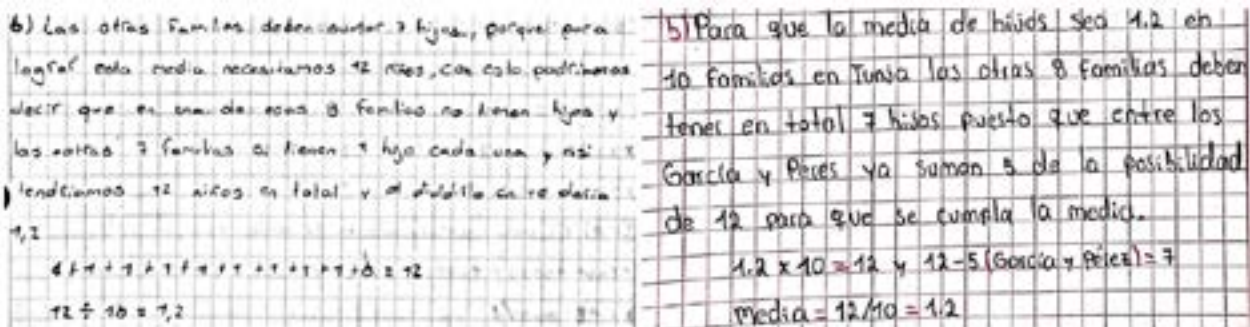 6) Las otras familias deben sumar 7 hijos, porque para
lograr esta media necesitamos 12 niños, con esto podriamos
decir que en una de esas 8 familias no tienen hijos y
las otras 7 familias si tienen 1 hijo cada una y asi
tendriamos 12 niños en total y al dividirlo en 10 daria
1,2
4+1+1+1+1+1+1+1+1+0=12
12÷10=1,2
5) Para que la media de hijos sea 1.2 en
10 familias en Tunja las otras 8 familias deben
tener en total 7 hijos puesto que entre los
García y Peres ya suman 5 de la posibilidad
de 12 para que se cumpla la media.
1.2 x 10 = 12 y 12-5 (García y Pérez) = 7
media = 12/10 = 1.2